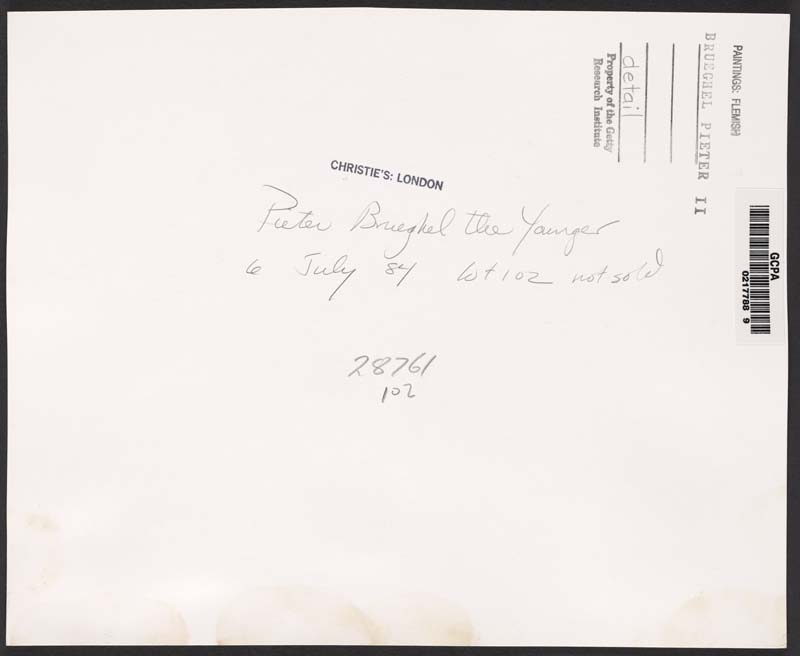 PAINTINGS: FLEMISH
BRUEGHEL PIETER II
detail
Property of the Getty
Research Institute
CHRISTIE'S: LONDON
Pieter Brueghel the Younger
6 July 84 lot 102 not sold
28761
102
GCPA
0217788 9